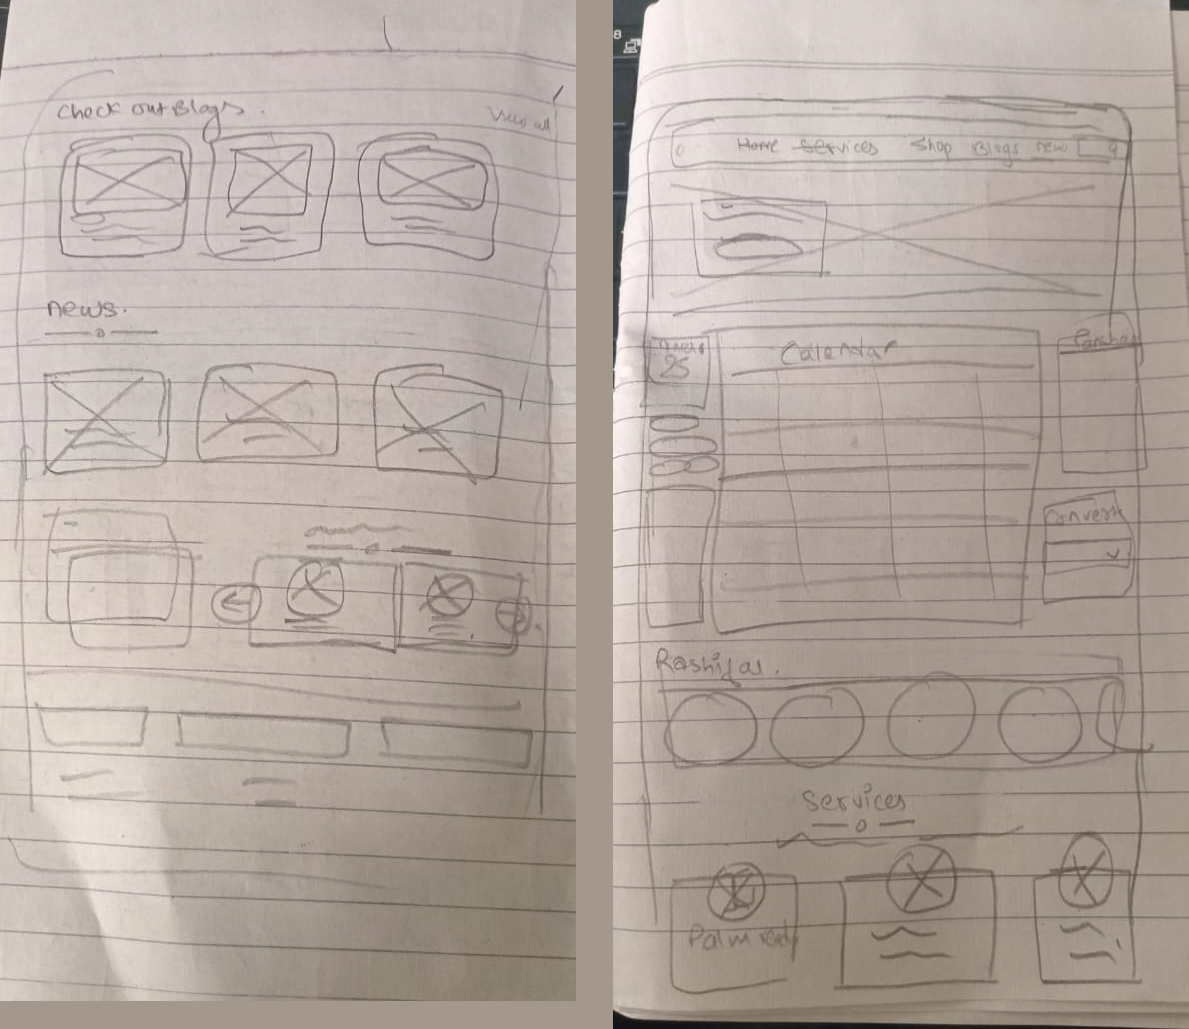 Check out Blogs.
View all
news.
8
Home Services Shop Blogs new
25
Calendar
Convert
Rashifal.
Services
Palm read